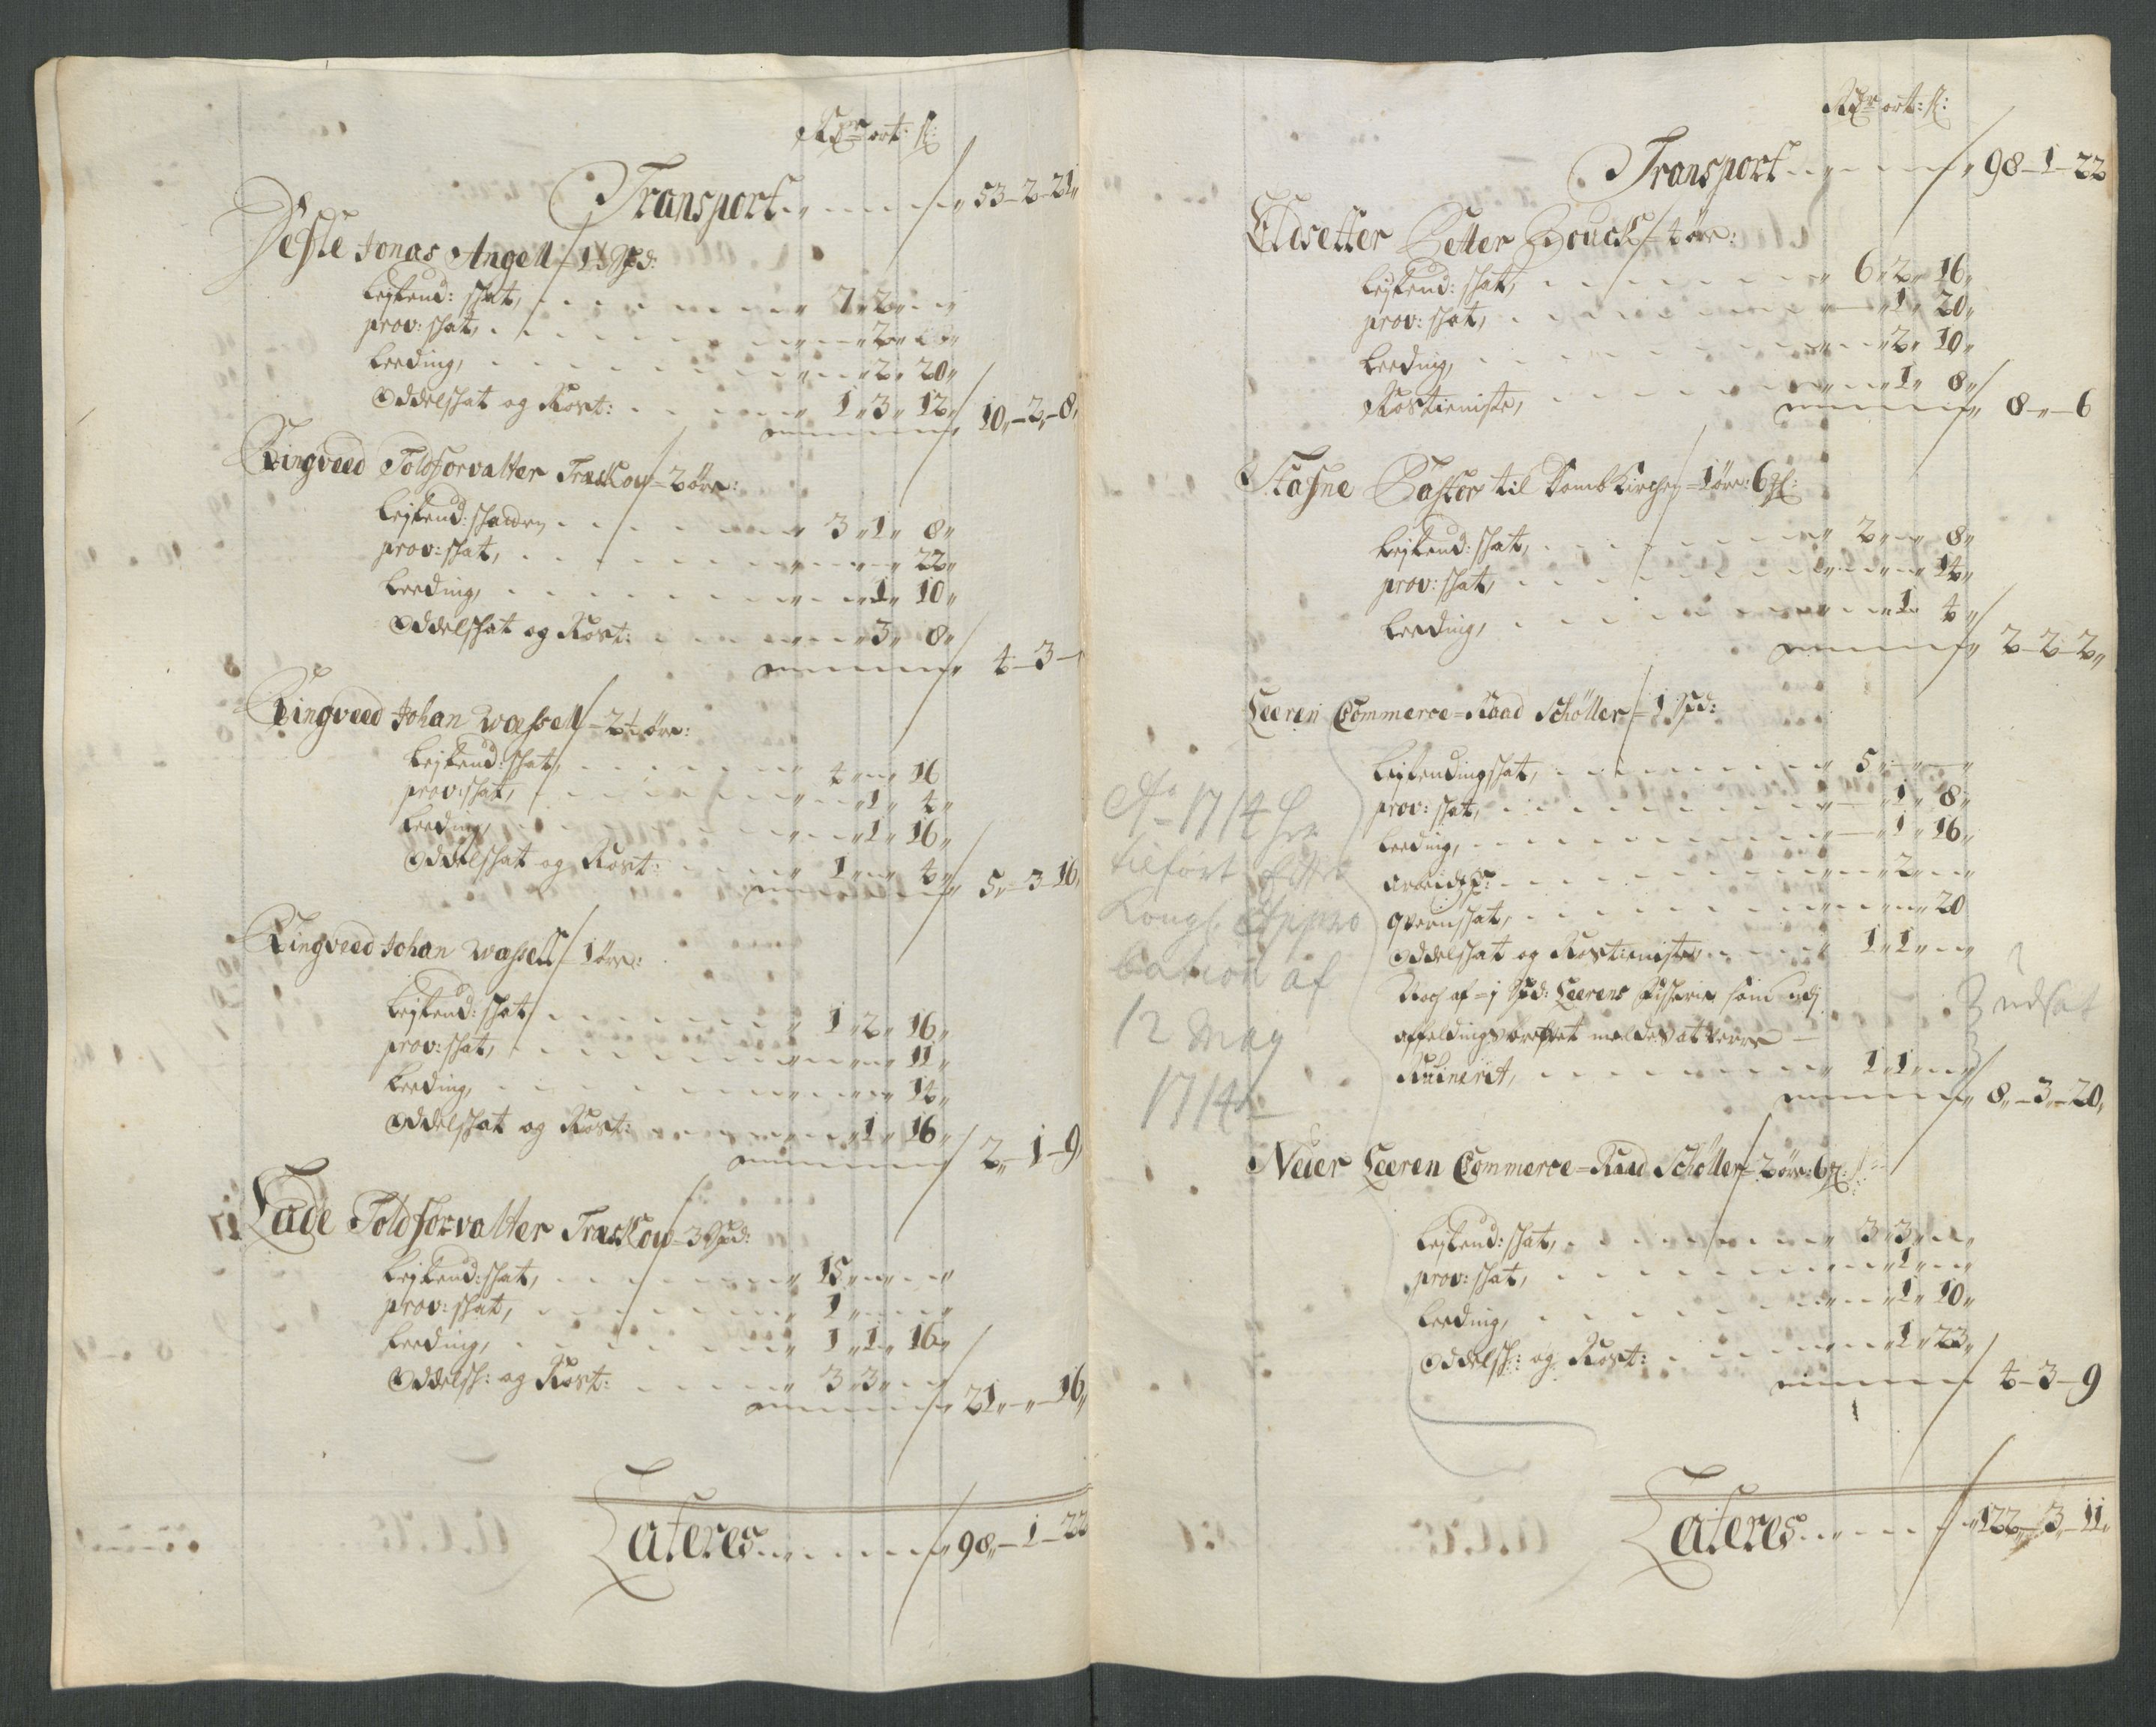 Rdr ort: ß:
Transport 53-2-21
Defle Jonas Angell 1½ Spd:
Leylend: skat, 7 2
prov: skat, 2
Leeding, 2 20
Oddelskat og Rost: 1 3 12 10-2-8
Ringveed Toldforvalter Træckow 2 øre:
Leylend: skaden 3 1 8
prov: skat, 22
Leeding, 1 10
Oddelskat og Rost: 3 8 4-3-
Ringveed Johan Wessell 2½ øre:
Leylend: skat, 4 16
prov: skat, 1 4
Leeding, 1 16
Oddelskat og Rost: 1 4 5-3-16
Ringveed Johan Wessell 1 øre:
Leylend: skat 1 2 16
prov: skat, 11
Leeding, 14
Oddelskat og Rost: 1 16 2-1-9
Lade Toldforvalter Træckow 3 Spd:
Leylend: skat, 15
prov: skat, 1
Leeding, 1 1 16
Oddelsk: og Rost: 3 3 21-"-16
Lateres 98-1-22
Rdr ort: ß:
Transport 98-1-22
Eldsetter Petter Houck 4 øre:
Leylend: skat, 6 2 16
prov: skat, 1 20
Leeding, 2 10
Rostieniste, 1 8 8-"-6
Stafne Pastor til Dombkirchen 1 øre: 6 ꝑl:
Leylend: skat, 2 8
prov: skat, 14
Leeding, 1 4 2-2-2
Leeren Commerce-Raad Schøller 1 Spd:
Leylendingskat, 5
prov: skat, 1 8
Leeding, 1 16
Arbeidsp: 2
qvernskat, 20
Oddelskat og Rostieniste 1 1
Noch af 1 Spd: Leerens som udj
affeldings meldes at være
Ruinerit, 1 1 8-3-20
udsat
Ao 1714 er
tilført efter
Kongl. Appro
bation af
12 May
1714
Neder Leeren Commerce-Raad Schøller 2 øre: 6 ꝑl:
Leylend: skat, 3 3
prov: skat, 1
Leeding, 1 10
Oddelsk: og Rost: 1 23 4-3-9
Lateres 122-3-11